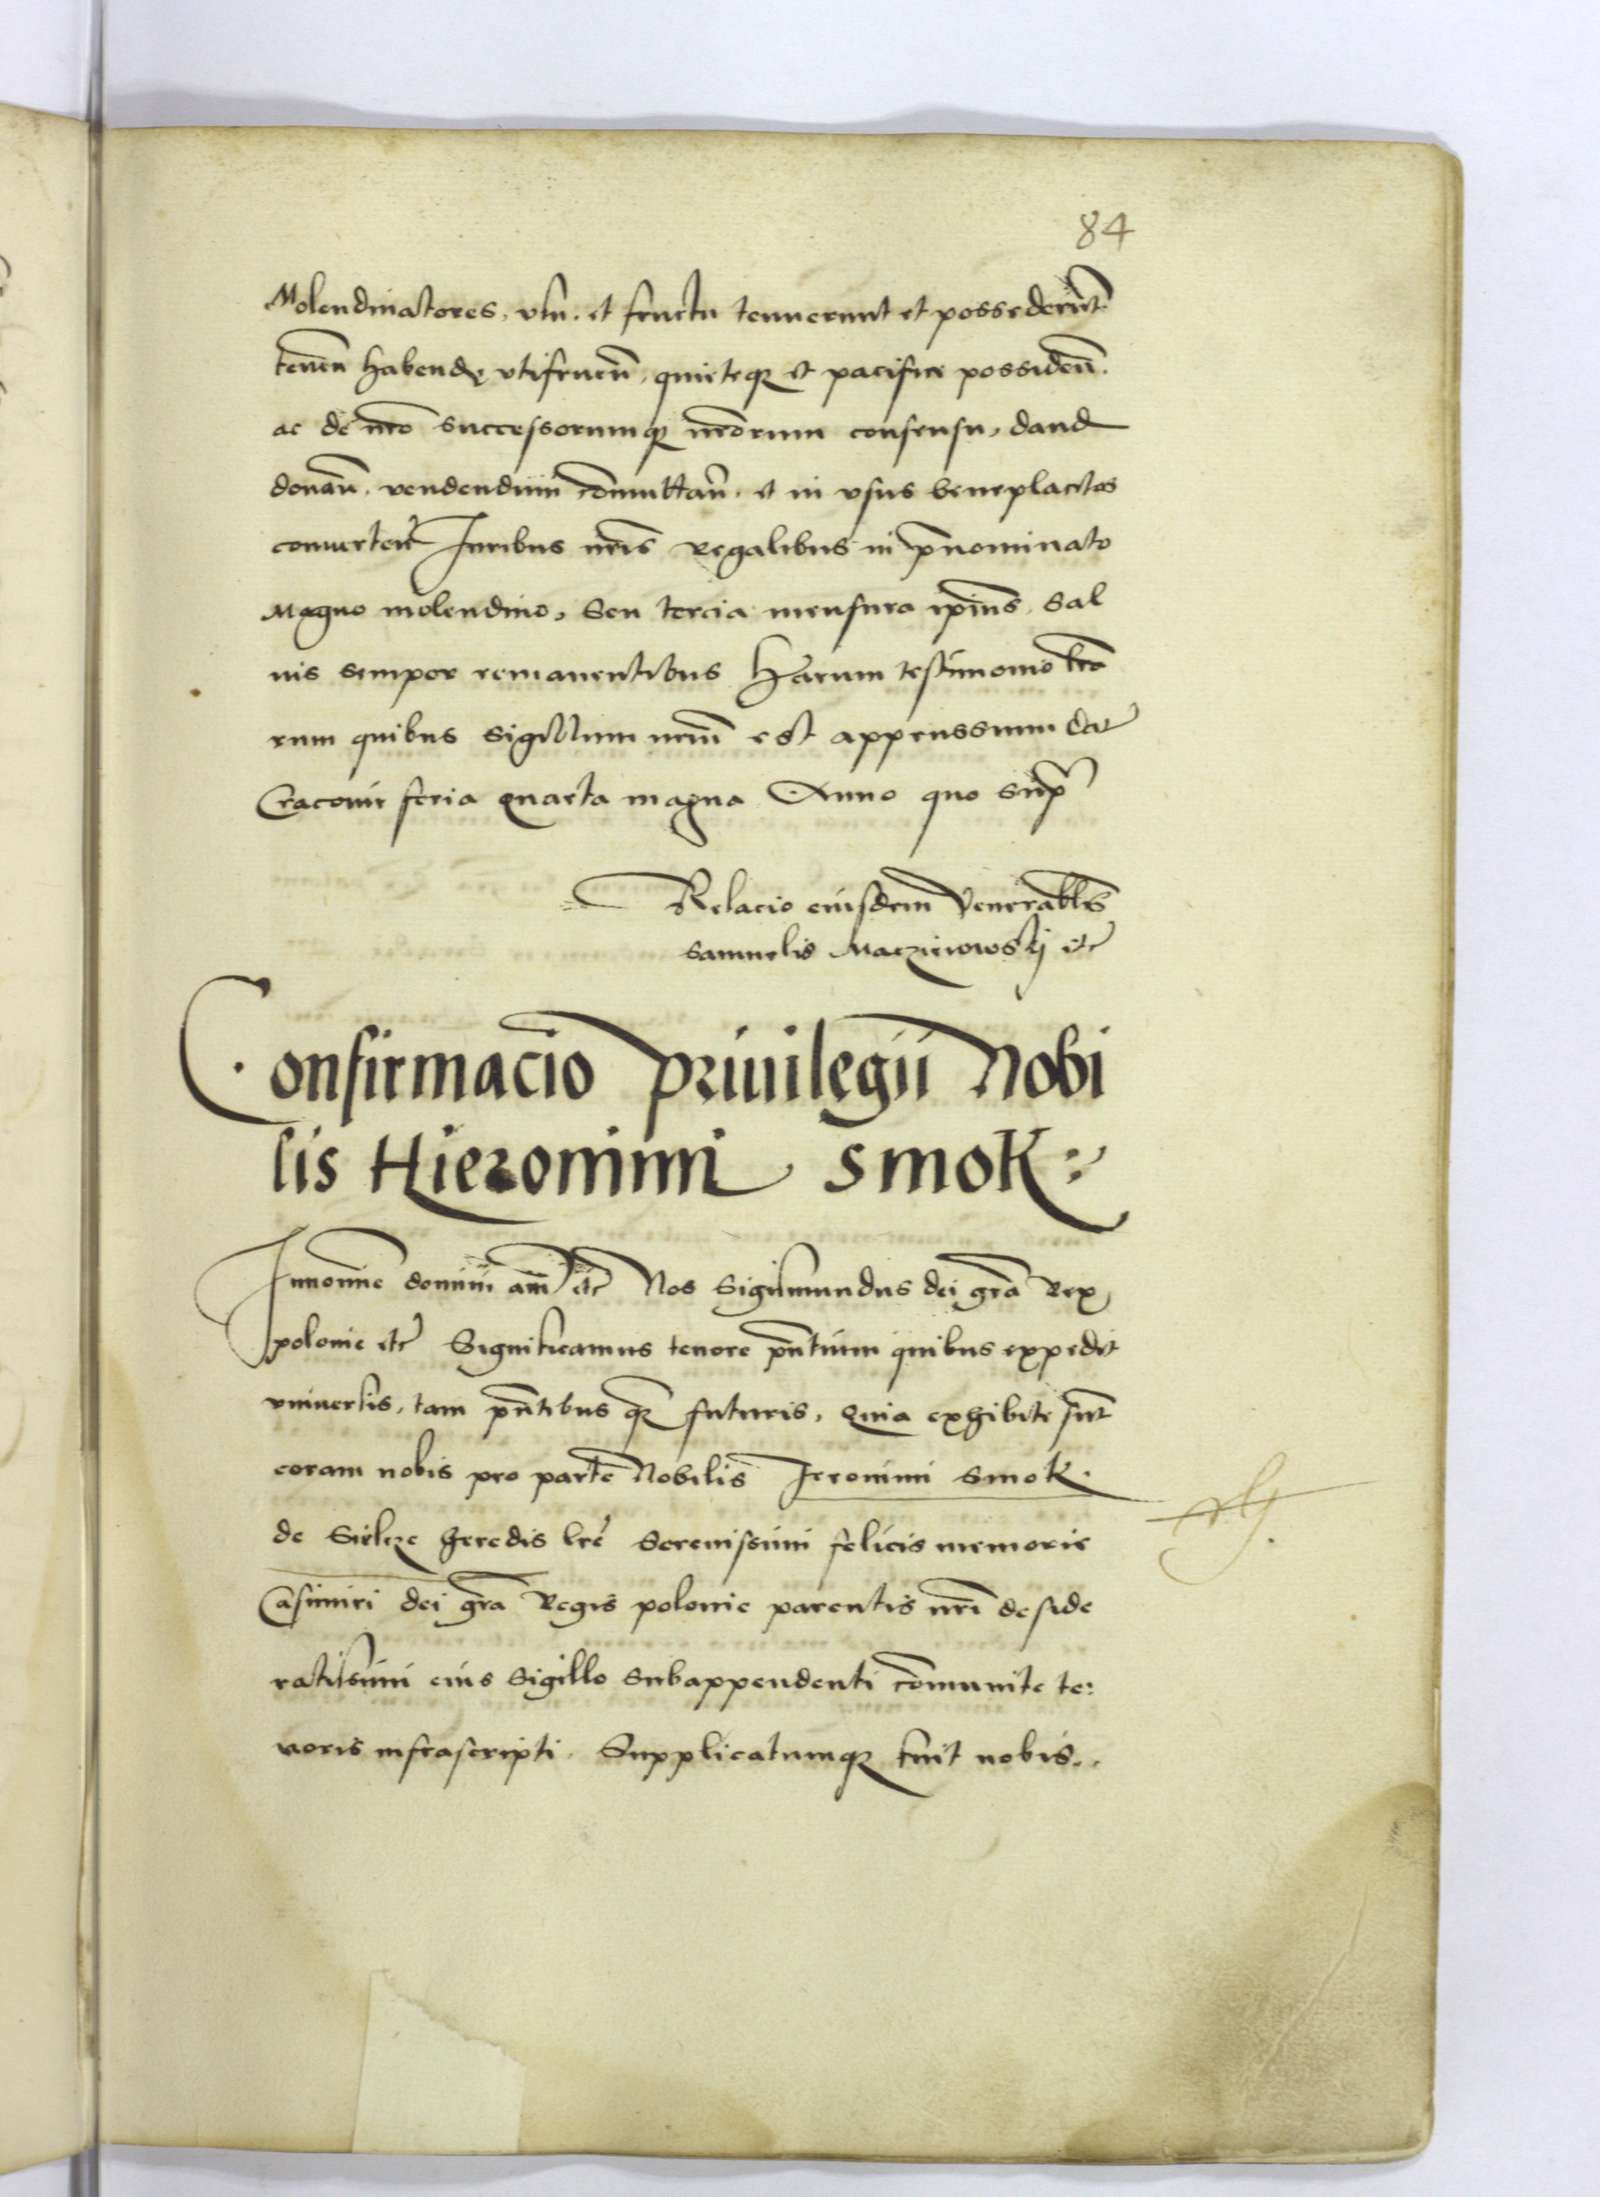 84
Molendinatores, usu. et fructu tenuerunt et possederūt
tenēn habendę utifruen̄, quieteqȝ et pacifice possideñ.
ac de nr̄o successorumqȝ nr̄orum consensu, dand
donañ, vendendum com̄uttañ, et in usus beneplacitos
convertēñ Juribus nr̄is regalibus in p̄nominato
Magno molendino, Seu tercia mensura ip̄ius, Sal
vis semper remanentibus Harum testimonio lr̄a
rum quibus sigillum nr̄um est appenssum dat̄
Cracovie feria quarta magna Anno quo sup̄
Relacio eiusdem Venerabl̄is
Samuelis Macziewowskj etc̄
Confirmacio Privilegii Nobi
lis Hieronimi Smok:
Innomīe domini am̄ etc̄ Nos Sigismundus dei gr̄a Rex
polonie etc̄ Significamus tenore p̄ntium quibus expedit
universis, tam p̄ntibus qȝ futuris, Quia exhibite sūt
coram nobis pro parte Nobilis Jeronimi Smok.
de Sielcze heredis lr̄e Serenissimi felicis memorie
Casimiri dei gr̄a Regis polonie parentis nr̄i deside
ratissimi eius Sigillo Subappendenti com̄unite te:
noris infrascripti. Supplicatumqȝ fuit nobis..